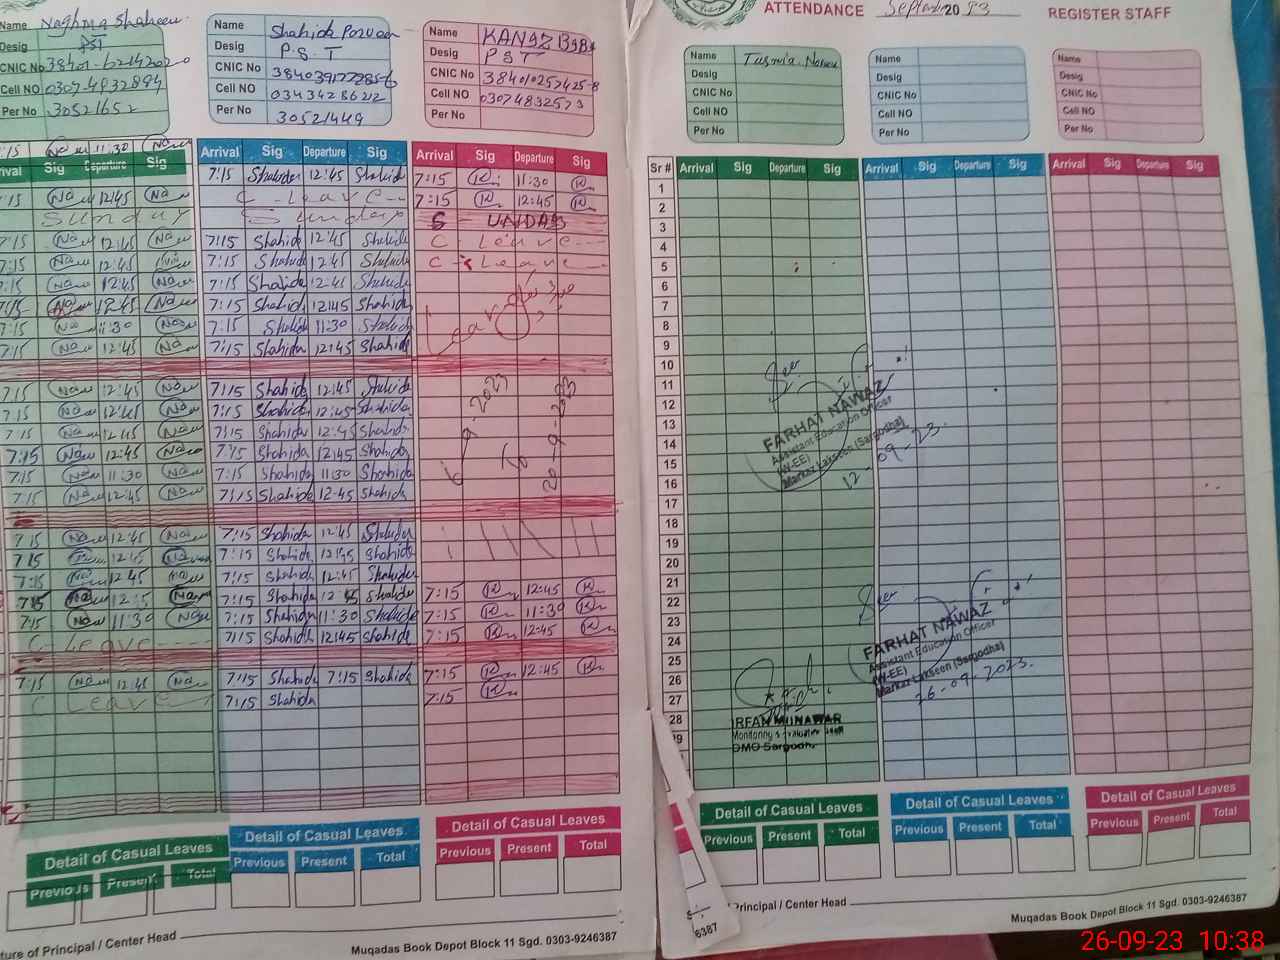 Name Naghma Shaheen
Desig PST
CNIC No 38401-6214202-0
Cell NO 0307-4832894
Per No 30521652
Name Shahida Parveen
Desig P.S.T
CNIC No 3840391772856
Cell NO 03434286212
Per No 30521449
Name KANAZ BIBI
Desig PST
CNIC No 3840102574258
Cell NO 03074832573
Per No
7:15 Na 11:30 Na
Arrival Sig Departure Sig Arrival Sig Departure Sig Arrival Sig Departure Sig
7:15 Na 12:45 Na 7:15 Shahida 12:45 Shahida 7:15 K 11:30 K
C - Leave - 7:15 K 12:45 K
Sunday Sunday SUNDAY
7:15 Na 12:45 Na 7:15 Shahida 12:45 Shahida C - Leave -
7:15 Na 12:45 Na 7:15 Shahida 12:45 Shahida C - Leave -
7:15 Na 12:45 Na 7:15 Shahida 12:45 Shahida
7:15 Na 12:45 Na 7:15 Shahida 12:45 Shahida Leave
7:15 Na 11:30 Na 7:15 Shahida 11:30 Shahida
7:15 Na 12:45 Na 7:15 Shahida 12:45 Shahida
7:15 Na 12:45 Na 7:15 Shahida 12:45 Shahida
7:15 Na 12:45 Na 7:15 Shahida 12:45 Shahida
7:15 Na 12:45 Na 7:15 Shahida 12:45 Shahida
7:15 Na 12:45 Na 7:15 Shahida 12:45 Shahida
7:15 Na 11:30 Na 7:15 Shahida 11:30 Shahida
7:15 Na 12:45 Na 7:15 Shahida 12:45 Shahida
6-9-2023 To 20-9-2023
7:15 Na 12:45 Na 7:15 Shahida 12:45 Shahida
7:15 Na 12:45 Na 7:15 Shahida 12:45 Shahida
7:15 Na 12:45 Na 7:15 Shahida 12:45 Shahida
7:15 Na 12:15 Na 7:15 Shahida 12:45 Shahida 7:15 K 12:45 K
7:15 Na 11:30 Na 7:15 Shahida 11:30 Shahida 7:15 K 11:30 K
C - Leave - 7:15 Shahida 12:45 Shahida 7:15 K 12:45 K
7:15 Na 12:45 Na 7:15 Shahida 7:15 Shahida 7:15 K 12:45 K
C Leave 7:15 Shahida 7:15 K
Detail of Casual Leaves Detail of Casual Leaves Detail of Casual Leaves
Previous Present Total Previous Present Total Previous Present Total
ture of Principal / Center Head
Muqadas Book Depot Block 11 Sgd. 0303-9246387
ATTENDANCE September 2023 REGISTER STAFF
Name
Desig
CNIC No
Cell NO
Per No
Name
Desig
CNIC No
Cell NO
Per No
Name
Desig
CNIC No
Cell NO
Per No
Sr # Arrival Sig Departure Sig Arrival Sig Departure Sig Arrival Sig Departure Sig
1
2
3
4
5
6
7
8
9
10
11
12
13
14
15
16
17
18
19
20
21
22
23
24
25
26
27
28
29
Seen
FARHAT NAWAZ
Assistant Education Officer
(W-EE)
Markaz Lakseen (Sargodha)
12-09-23
Seen
FARHAT NAWAZ
Assistant Education Officer
(W-EE)
Markaz Lakseen (Sargodha)
26-09-2023
IRFAN MUNAWAR
DMO Sargodha
Detail of Casual Leaves Detail of Casual Leaves Detail of Casual Leaves
Previous Present Total Previous Present Total Previous Present Total
Principal / Center Head
6387
Muqadas Book Depot Block 11 Sgd. 0303-9246387
26-09-23 10:38